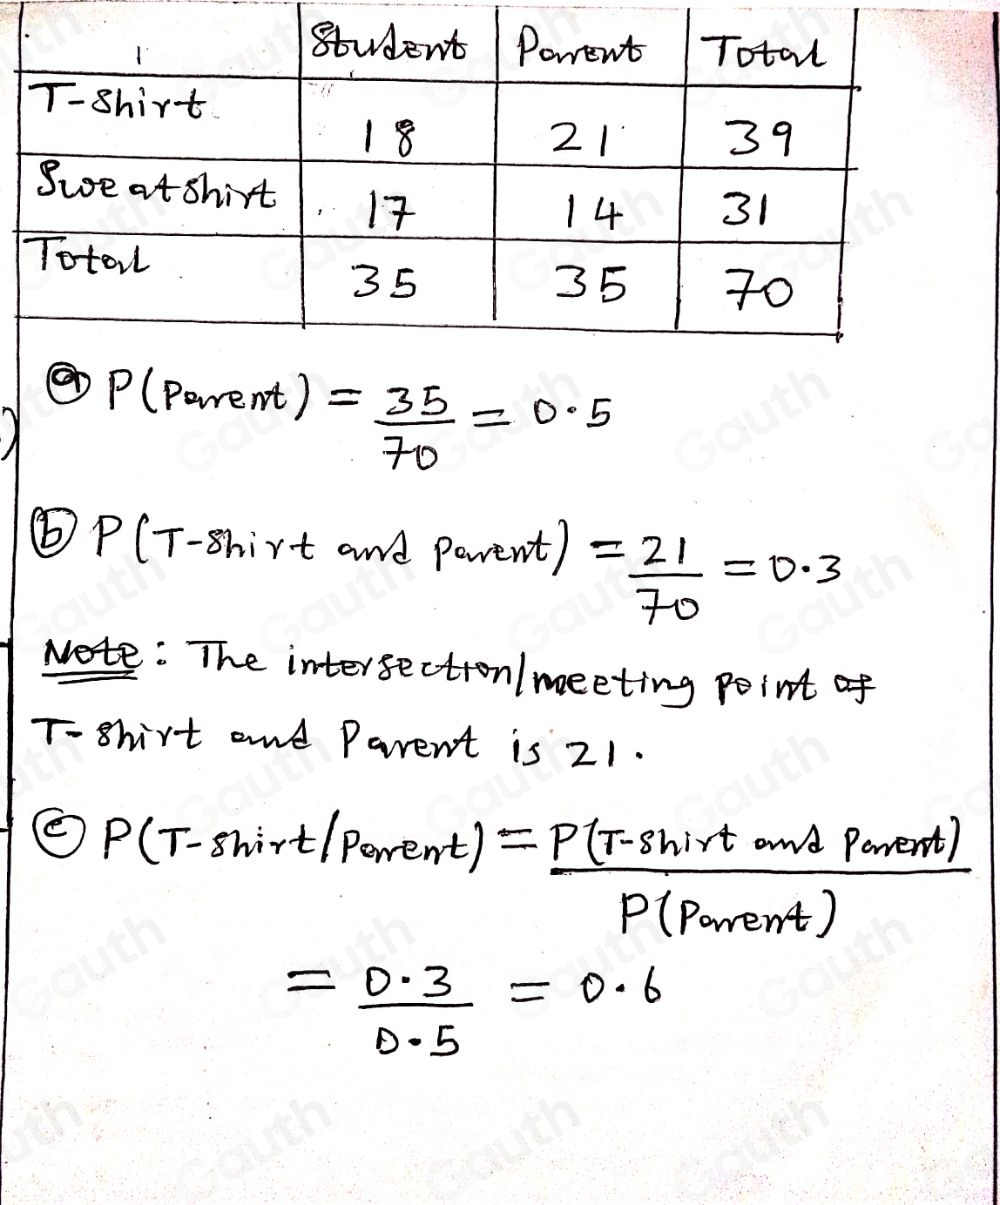 Student Parent Total
T-Shirt 18 21 39
Sweatshirt 17 14 31
Total 35 35 70
ⓐ P(Parent) = 35/70 = 0.5
ⓑ P(T-Shirt and parent) = 21/70 = 0.3
Note: The intersection/meeting point of
T-Shirt and Parent is 21.
ⓒ P(T-Shirt/Parent) = P(T-Shirt and Parent)
P(Parent)
= 0.3/0.5 = 0.6